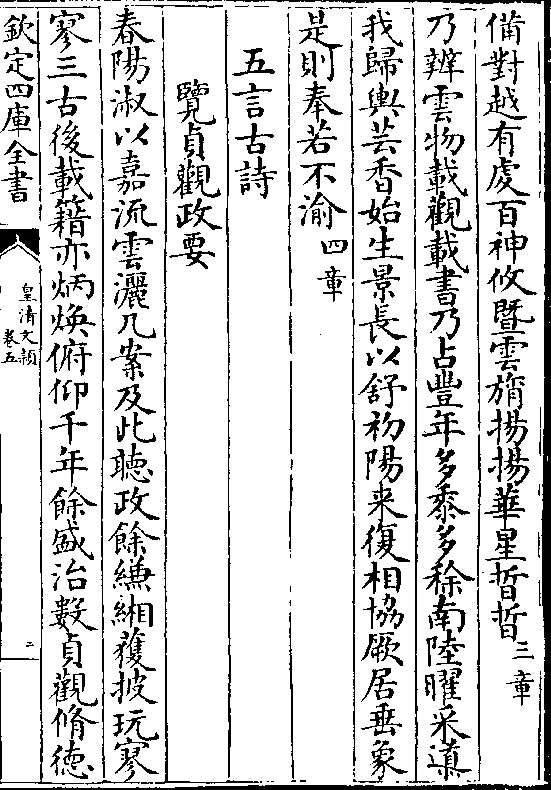 備對越有䖏百神攸曁雲旓揚揚華星晢晢三章
乃辨雲物載觀載書乃占豐年多黍多稌南陸曜采蓂
我歸輿芸香始生景長以舒初陽来復相協厥居垂象
是則奉若不渝四章
五言古詩
覽貞觀政要
春陽淑以嘉流雲灑几案及此聴政餘縑緗獲披玩寥
寥三古後載籍亦炳煥俯仰千年餘盛治數貞觀脩徳
欽定四庫全書
皇清文穎
卷五
二